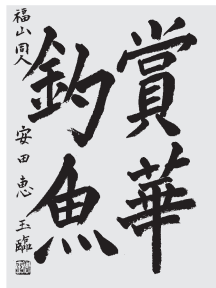 賞華
釣魚
福山同人 安田恵玉臨